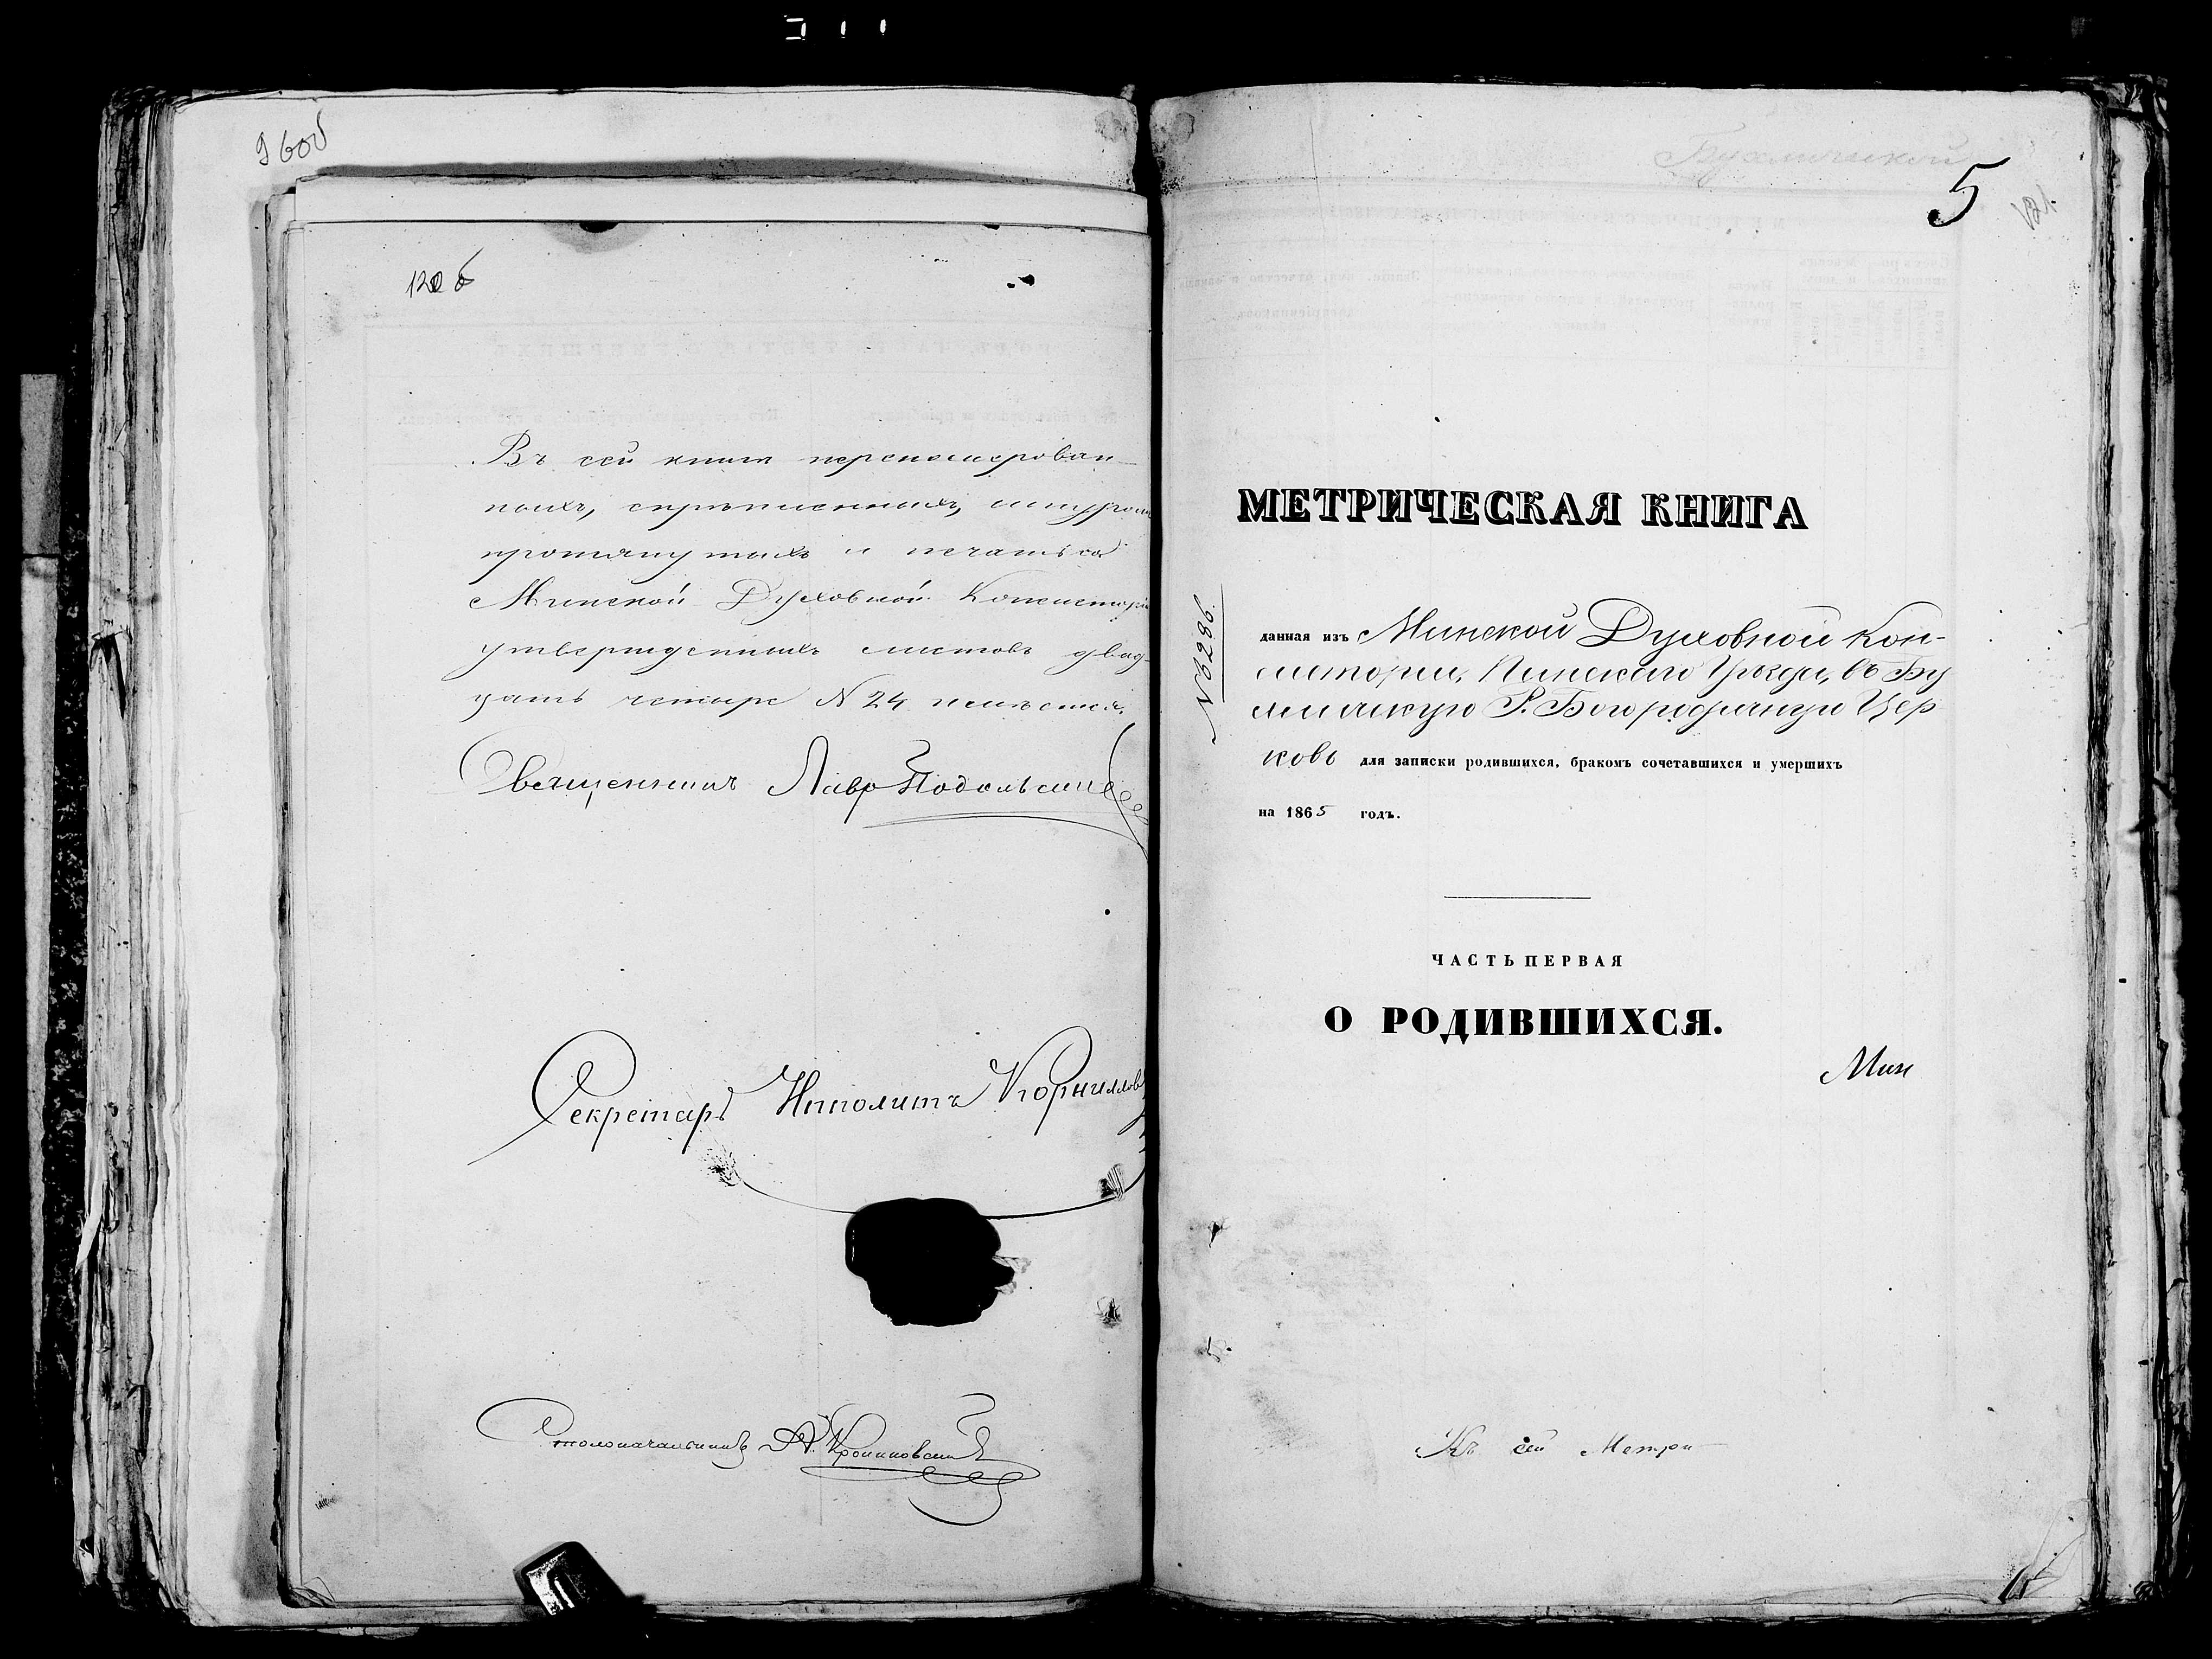 120б
Въ сей книгѣ перенумерован-
ныхъ, скрѣпленныхъ, шнуромъ
протянутыхъ и печатью
Минской Духовной Консисторіи
утвержденныхъ листовъ двад-
цать четыре № 24 числ.
Священникъ Лавр Подольскій
Секретарь Ипполитъ Корниллов
Столоначальникъ
5
121.
МЕТРИЧЕСКАЯ КНИГА
№ 3286.
данная изъ Минской Духовной Кон-
систоріи, Пинскаго Уѣзда, въ Бу
скую Р. Богородичную Цер
ковь для записки родившихся, бракомъ сочетавшихся и умершихъ
на 1865 годъ.
ЧАСТЬ ПЕРВАЯ
О РОДИВШИХСЯ.
Мин
Къ сей Метри